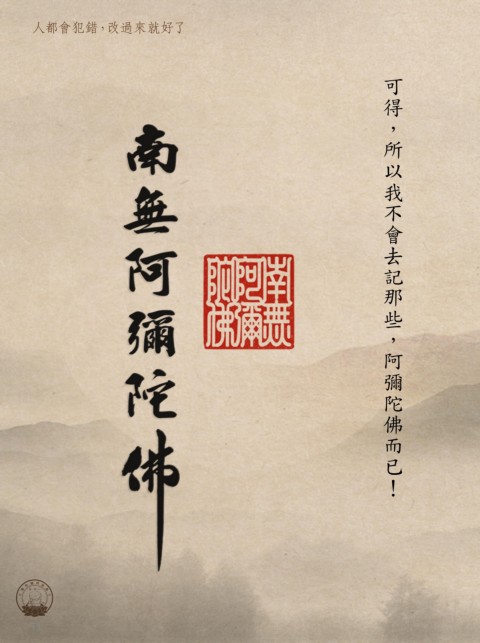 人都會犯錯，改過來就好了
可得，所以我不會去記那些，阿彌陀佛而已！
南無阿彌陀佛
南無
阿彌
陀佛